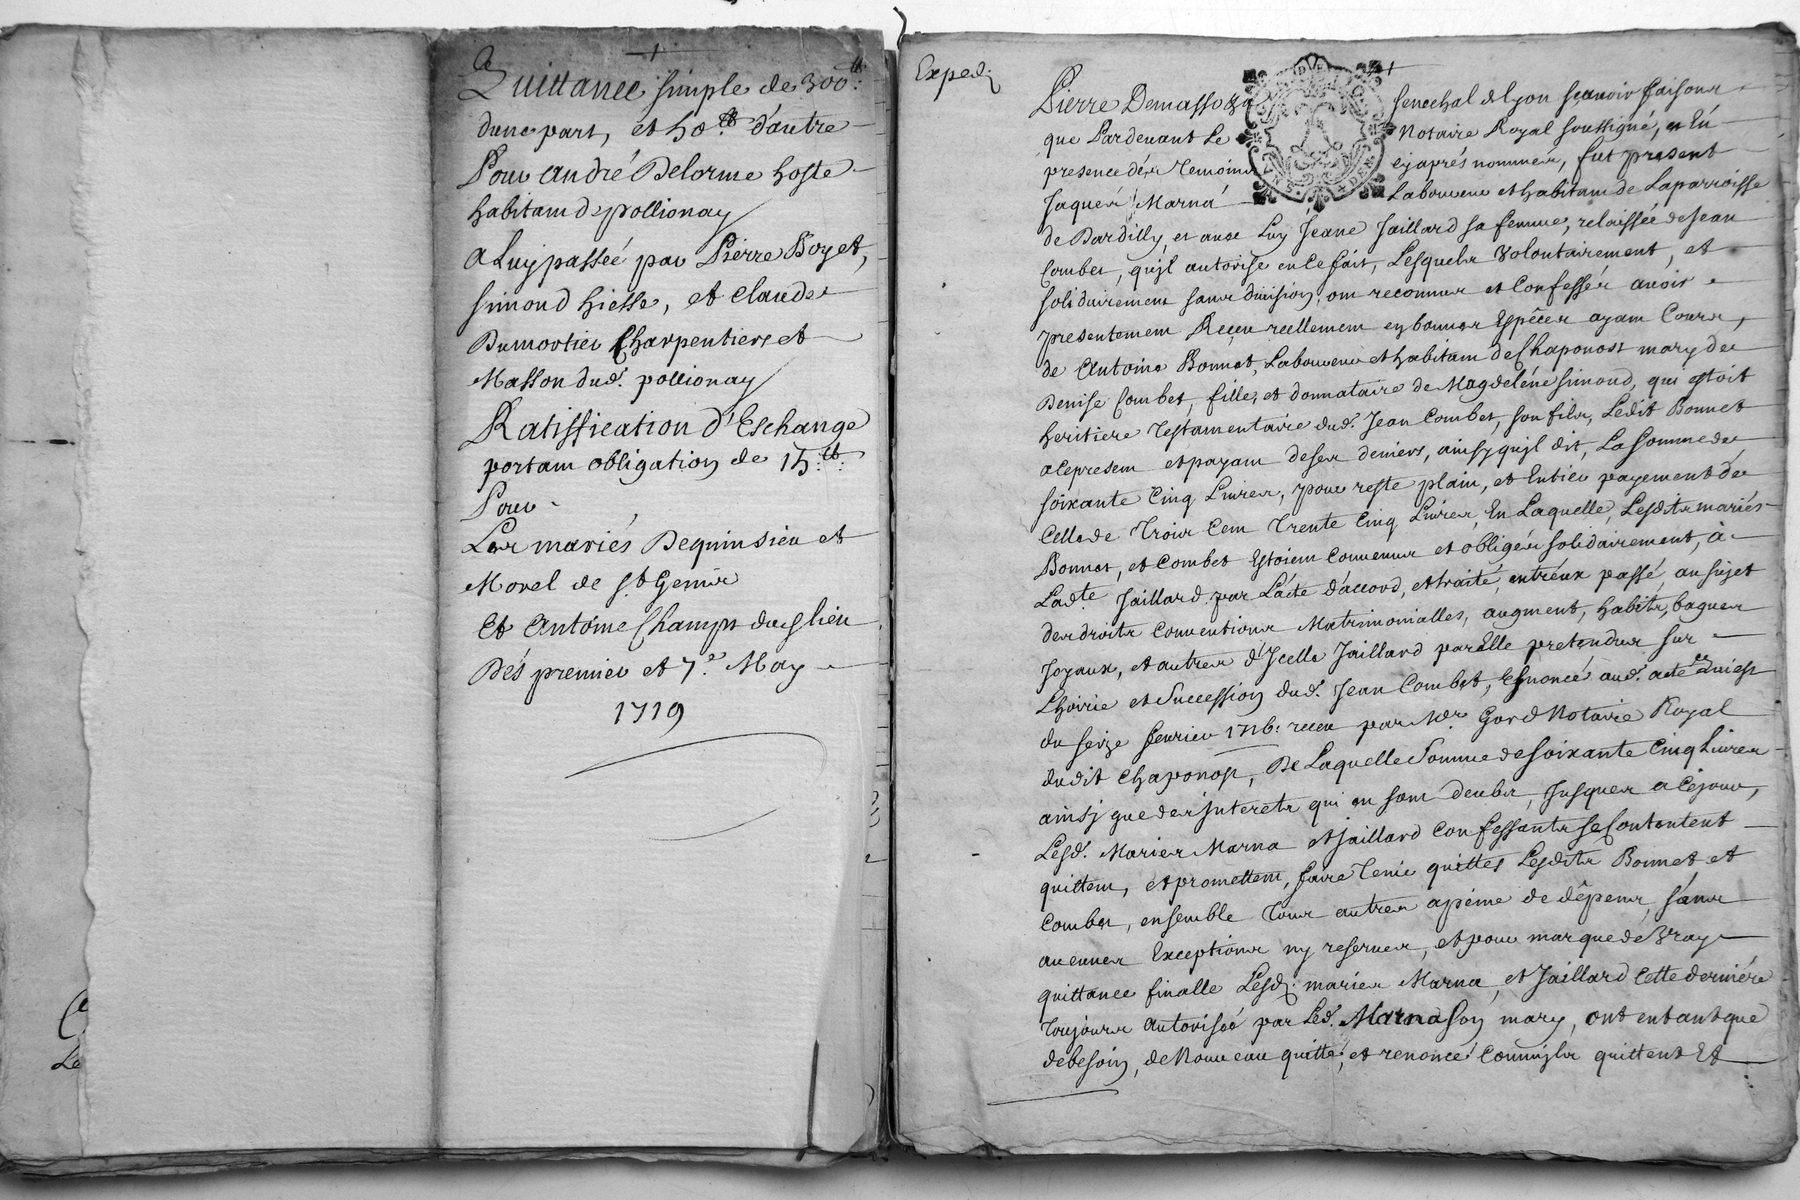 Quittance simple de 300ᵗᵗ
dune part, et 40ᵗᵗ d'autre
Pour André Delorme hoste
habitant de pollionay
a Luy passée par Pierre Boyet,
simond hiesse, et Claude
Dumortier Charpentiers et
Masson dud. pollionay
Ratiffication d'Eschange
portant obligation de 15ᵗᵗ
Pour
Les mariés Dequinsieu et
Morel de St. Genis
Et Antoine Champt dud lieu
Dés premier et 7e May
1719
C
Le
Exped.
Pierre Demasso senechal de Lyon sçavoir faisons
que Pardevant Le Notaire Royal soussigné, et En
presence dés Temoins cy aprés nommés, fut present
Jaques Marna Laboureur et habitant de La parroisse
de Dardilly, et avec Luy Jeane Jaillard sa femme, relaissée de Jean
Combet, quil autorise en ce fait, Lesquels Volontairement, et
solidairement sans division, ont reconnus et Confessés avoir
presentement Receu reellement en bonnes Espêces ayant Cours,
de Antoine Bonnet, Laboureur et habitant de Chaponost mary de
Denise Combet, fille, et donnataire de Magdeléne Simond, qui estoit
heritiere Testamentaire dud. Jean Combet, son fils, Ledit Bonnet
a ce present et payant de ses deniers, ainsy quil dit, La somme de
soixante Cinq Livres, pour reste plain, et Entier payement de
Celle de Trois Cent Trente Cinq Livres, En Laquelle, Lesdits mariés
Bonnet, et Combet Estoient Convenus et obligés solidairement, à
Ladte. Jaillard par L'acte d'accord, et traité, entréux passé, au sujet
des droits Conventions Matrimonialles, augment, habits, bagues
Joyaux, et autres d'Jcelle Jaillard par Elle pretendus sur
L'hoirie et Succession dud. Jean Combet, Esnoncés aud. acte Qui est
du seize fevrier 1716 receu par Me Gord Notaire Royal
dudit Chaponost, De Laquelle Somme de soixante Cinq Livres
ainsj que des jnterets qui en sont deubs, Jusques a Cejour,
Lesd. Maries Marna et Jaillard Confessants se Contentent
quittent, et promettent, faire Tenir quittes Lesdits Bonnet, et
Combet, ensemble Tous autres apéine de dêpens, sans
aucunes Exceptions ny reserves, et pour marque de Vray
quittance finalle Lesd. maries Marna, et Jaillard Cette derniére
Toujours Autorisée par Led. Marna son mary, ont entant que
debesoin, de Nouveau quitté, et renoncé Commils quittent Et